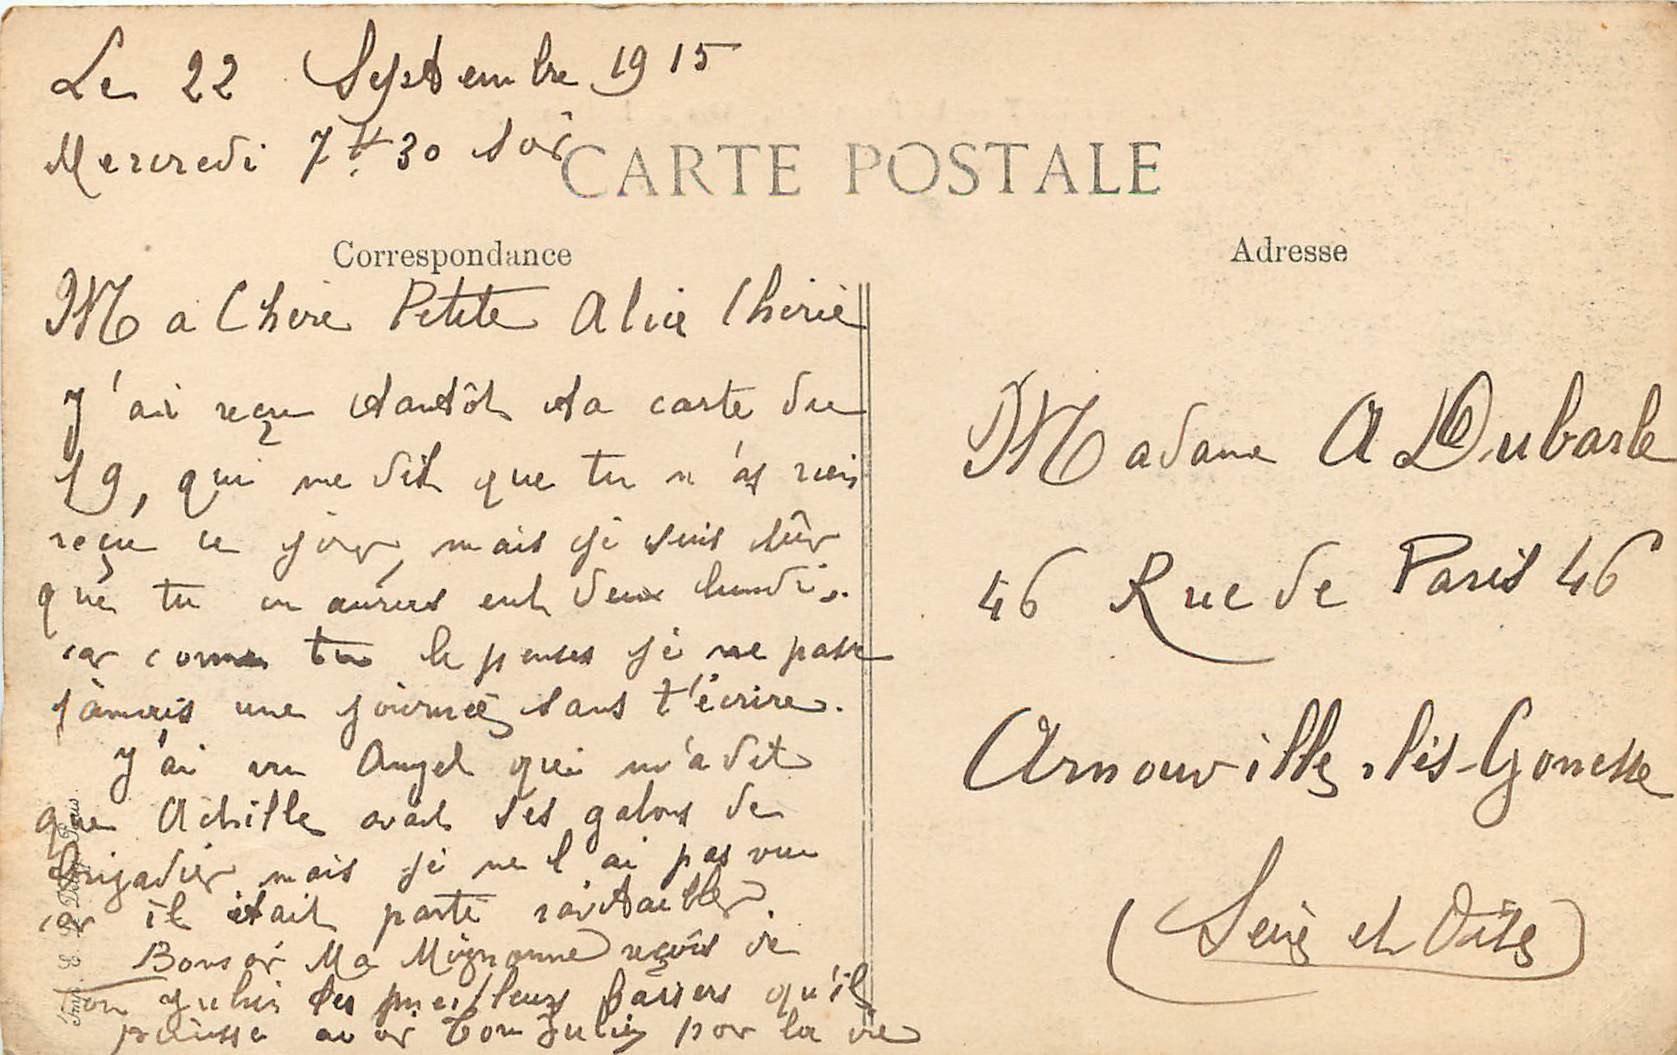 Le 22 Septembre 1915
Mercredi 7 H 30 soir
CARTE POSTALE
Correspondance
Ma Chère Petite Alice Chérie
J'ai reçu tantôt ta carte du
19, qui me dit que tu n'as rien
reçu ce jour, mais je suis sûr
que tu en auras eut deux lundi.
car comme tu le penses je ne passe
jamais une journée sans t'écrire.
J'ai vu Angel qui m'a dit
que Achille avait ses galons de
Brigadier mais je ne l'ai pas vu
car il était parti ravitailler
Bonsoir Ma Mignonne reçois de
ton Julien les meilleurs baisers qu'il
puisse avoir Ton Julien pour la vie
Adresse
Madame A Dubarle
46 Rue de Paris 46
Arnouville-lès-Gonesse
(Seine et Oise)
Paris.